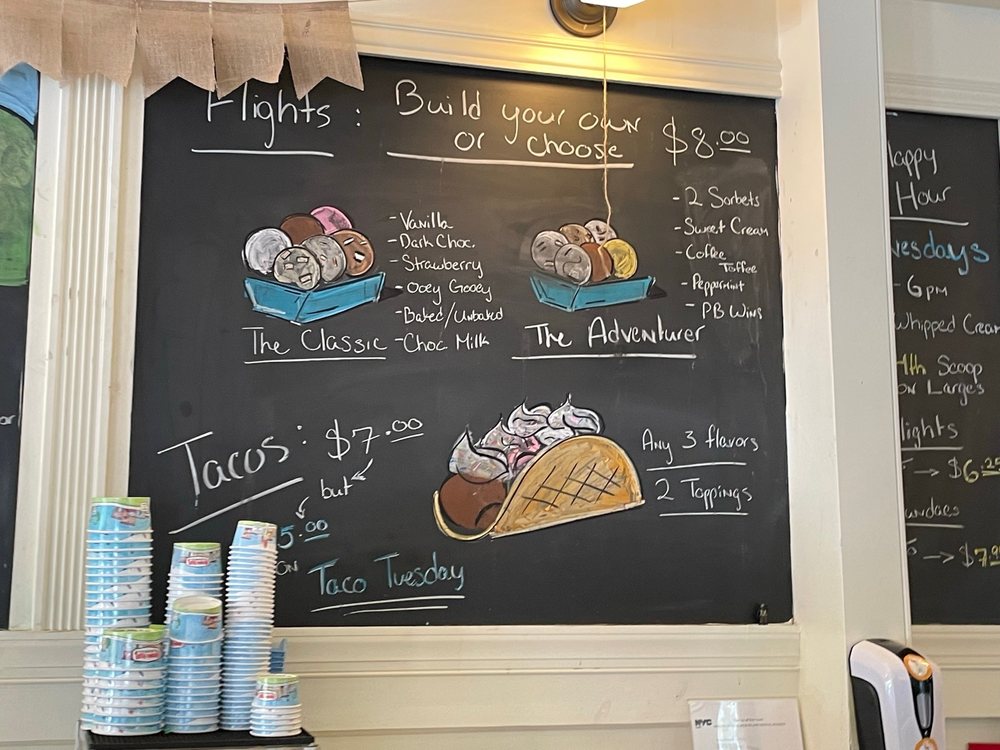 Flights: Build your own
or choose $8.00
- Vanilla
- Dark Choc.
- Strawberry
- Ooey Gooey
- Baked/Unbaked
- Choc Milk
The Classic
- 2 Sorbets
- Sweet Cream
- Coffee
Toffee
- Peppermint
- PB Wins
The Adventurer
Tacos: $7.00
but
5.00
ON
Taco Tuesday
Any 3 flavors
2 Toppings
appy
Hour
esdays
- 6pm
Whipped Cream
4th Scoop
on Larges
lights
→ $6.25
undaes
→ $7.9
NYC